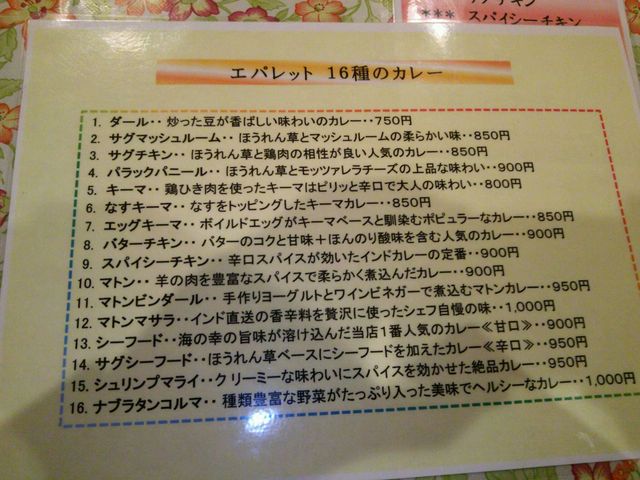 ***
スパイシーチキン
エパレット 16種のカレー
1. ダール‥ 炒った豆が香ばしい味わいのカレー‥750円
2. サグマッシュルーム‥ ほうれん草とマッシュルームの柔らかい味‥850円
3. サグチキン‥ ほうれん草と鶏肉の相性が良い人気のカレー‥850円
4. パラックパニール‥ ほうれん草とモッツァレラチーズの上品な味わい‥900円
5. キーマ‥ 鶏ひき肉を使ったキーマはピリッと辛口で大人の味わい‥800円
6. なすキーマ‥ なすをトッピングしたキーマカレー‥850円
7. エッグキーマ‥ ボイルドエッグがキーマベースと馴染むポピュラーなカレー‥850円
8. バターチキン‥ バターのコクと甘味＋ほんのり酸味を含む人気のカレー‥900円
9. スパイシーチキン‥ 辛口スパイスが効いたインドカレーの定番‥900円
10. マトン‥ 羊の肉を豊富なスパイスで柔らかく煮込んだカレー‥900円
11. マトンビンダール‥ 手作りヨーグルトとワインビネガーで煮込むマトンカレー‥950円
12. マトンマサラ‥インド直送の香辛料を贅沢に使ったシェフ自慢の味‥1,000円
13. シーフード‥海の幸の旨味が溶け込んだ当店1番人気のカレー≪甘口≫‥900円
14. サグシーフード‥ほうれん草ベースにシーフードを加えたカレー≪辛口≫‥950円
15. シュリンプマライ‥クリーミーな味わいにスパイスを効かせた絶品カレー‥950円
16. ナブラタンコルマ‥ 種類豊富な野菜がたっぷり入った美味でヘルシーなカレー‥1,000円